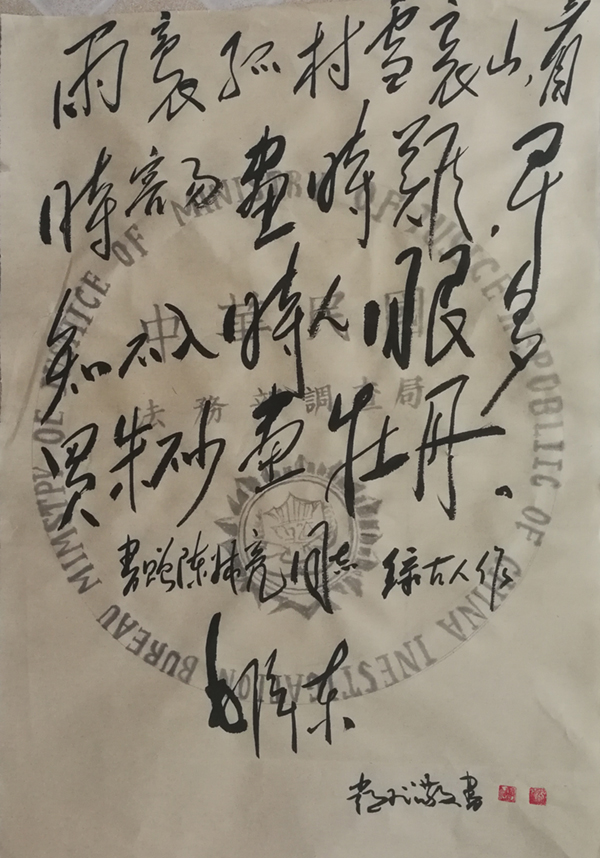 雨裹孤村雪裹山,看
時容易畫時難.早
知不入時人眼多
買朱砂畫牡丹。
書贈陳亮同志 古人作
澤東
敬書
中華民國
法務部調查局
MIMSTPY OF OF MINISTR OF OF CHINA BUREAU